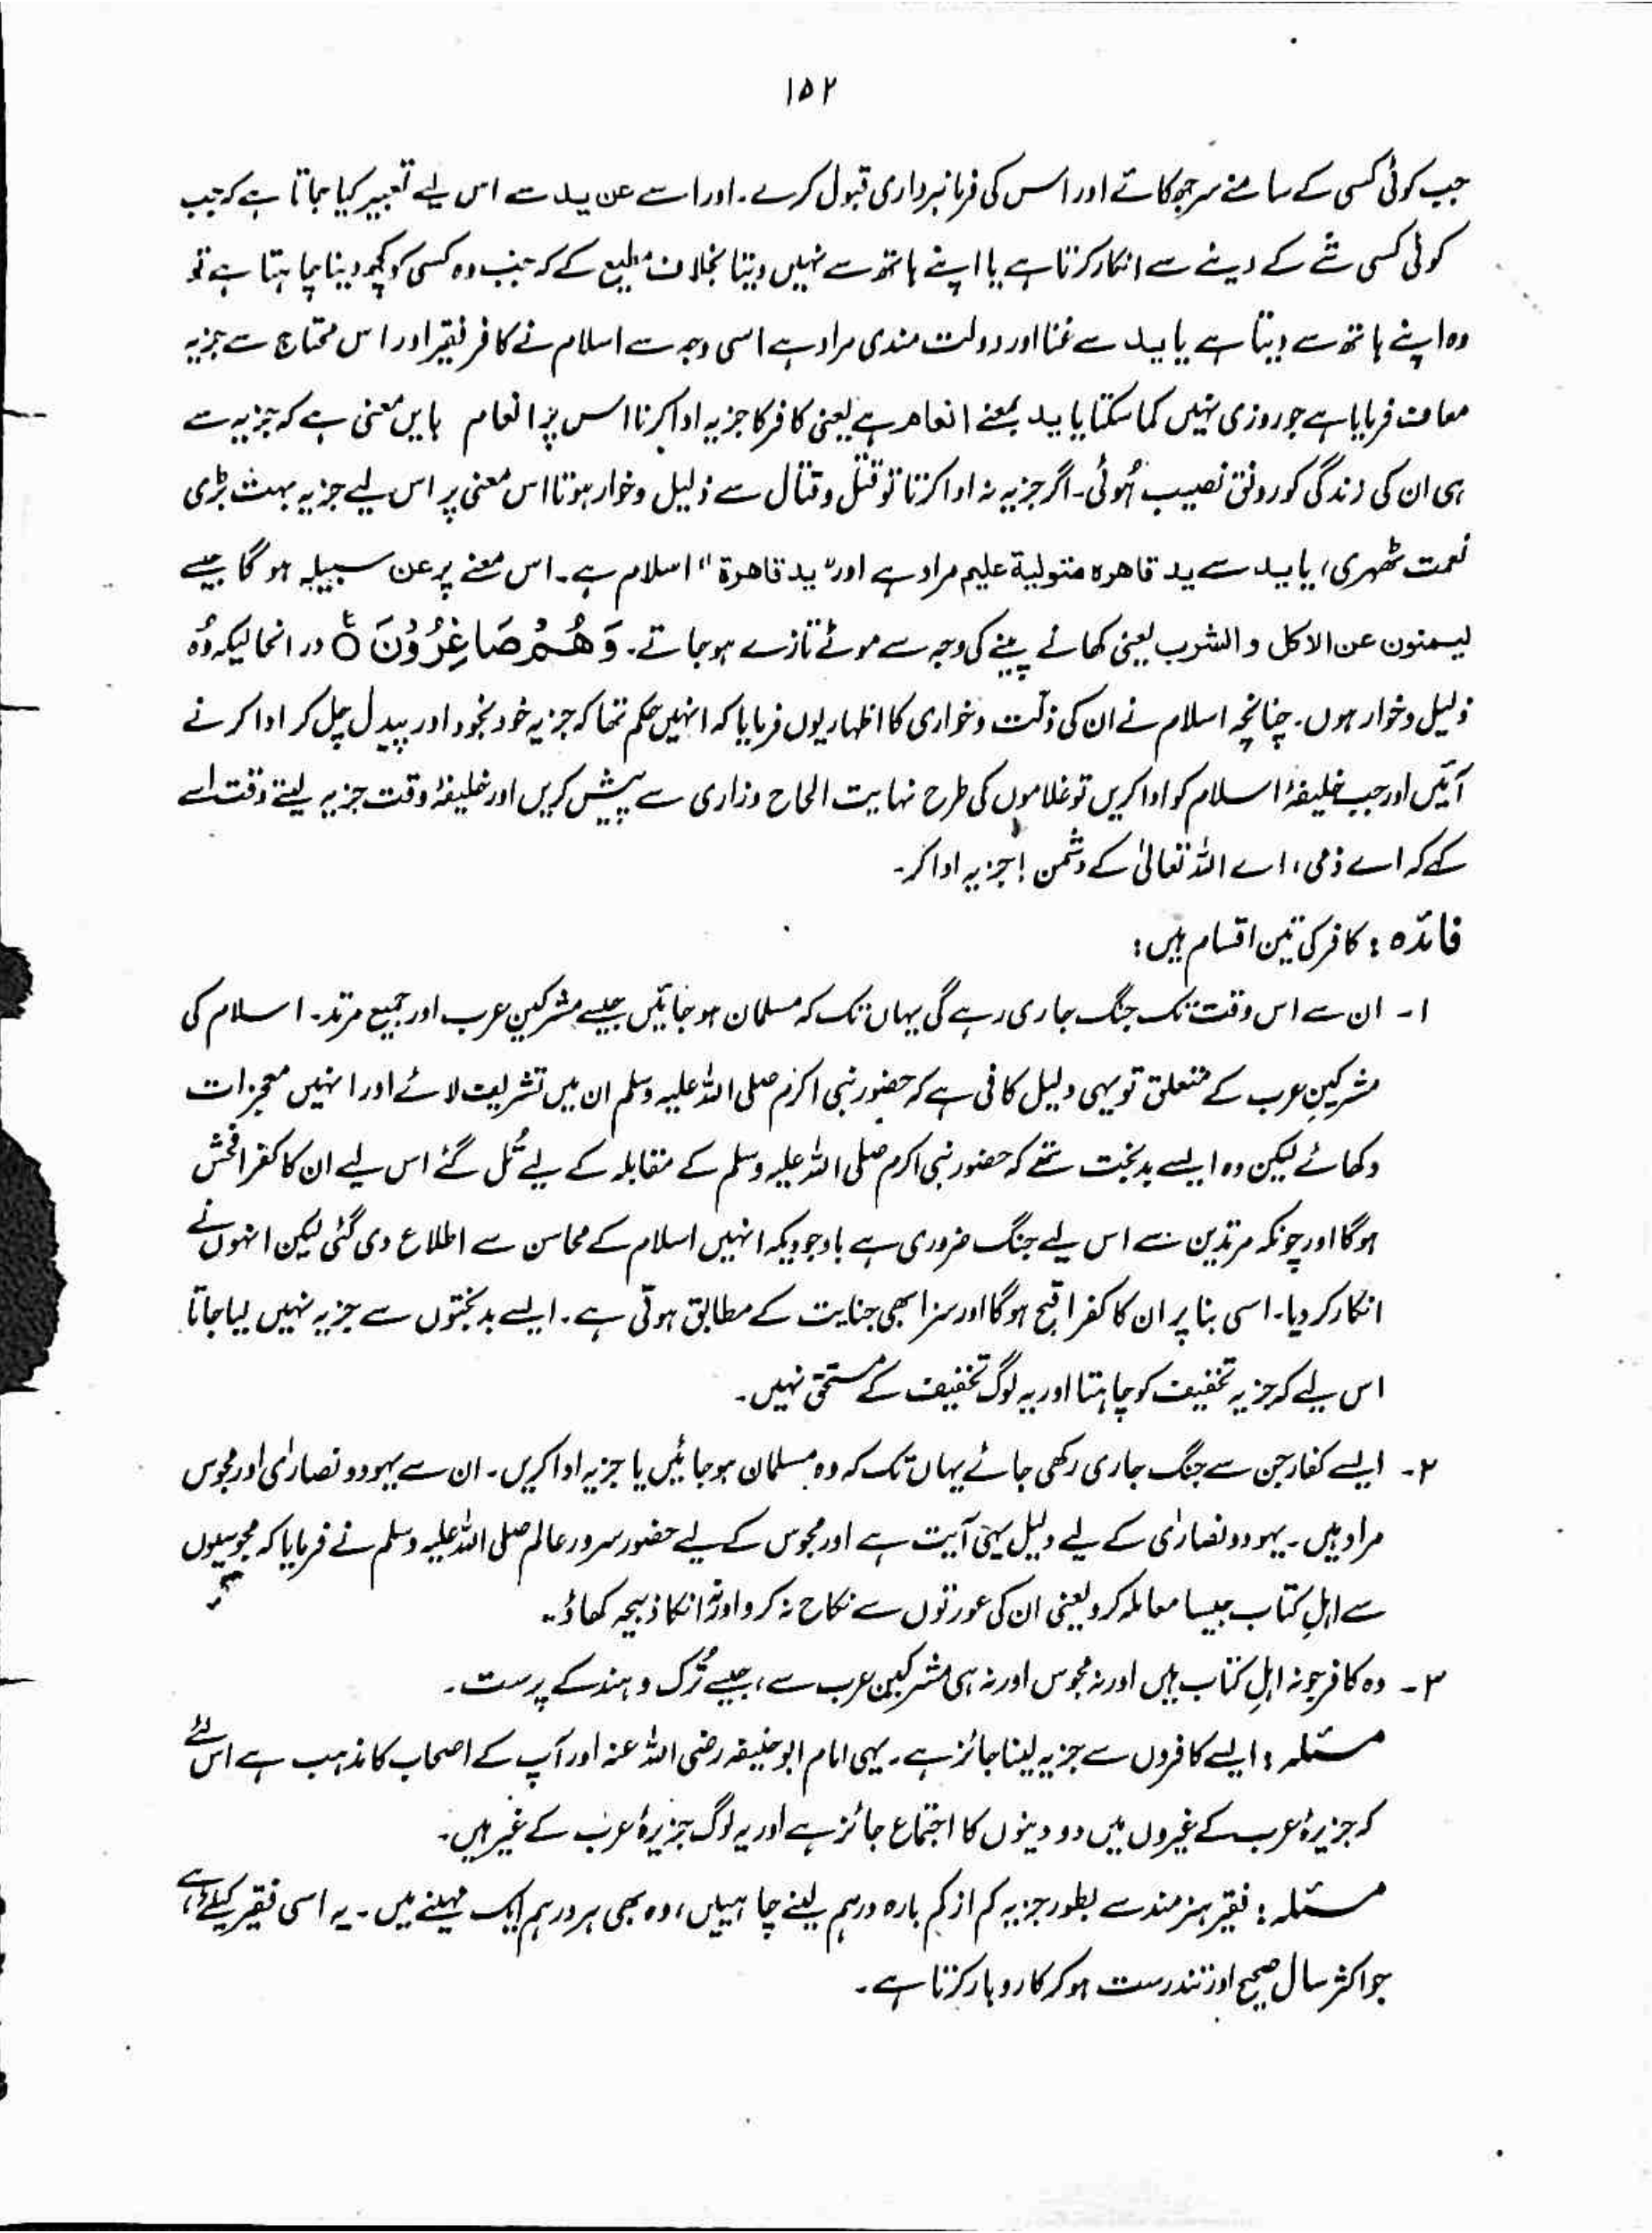 ۱۵۲
جب کوئی کسی کے سامنے سر جھکاتے اور اس کی فرمانبرداری قبول کرے۔ اور اسے عن ید سے اس لیے تعبیر کیا جاتا ہے کہ جب
کوئی کسی شے کے دینے سے انکار کرتا ہے یا اپنے ہاتھ سے نہیں دیتا بخلاف مطیع کے کہ جب وہ کسی کو کچھ دینا چاہتا ہے تو
وہ اپنے ہاتھ سے دیتا ہے یا ید سے غنا اور دولت مندی مراد ہے اسی وجہ سے اسلام نے کافر فقیر اور اس محتاج سے جزیہ
معاف فرمایا ہے جو روزی نہیں کما سکتا یا ید بمعنے انعام ہے یعنی کافر کا جزیہ ادا کرنا اس پر انعام بایں معنی ہے کہ جزیہ سے
ہی ان کی زندگی کو رونق نصیب ہُوئی۔ اگر جزیہ نہ ادا کرتا تو قتل و قتال سے ذلیل و خوار ہوتا اس معنی پر اس لیے جزیہ بہت بڑی
نعمت ٹھہری، یا ید سے ید قاھرہ متولیة علیہم مراد ہے اور "ید قاھرة" اسلام ہے۔ اس معنے پر عن سببیہ ہو گا جیسے
یسمنون عن الاکل و الشرب یعنی کھانے پینے کی وجہ سے موٹے تازے ہو جاتے۔ وَھُمْ صَاغِرُوْنَ ○ در انحالیکہ وُہ
ذلیل و خوار ہوں۔ چنانچہ اسلام نے ان کی ذلّت و خواری کا اظہار یوں فرمایا کہ انہیں حکم تھا کہ جزیہ خود بخود اور پیدل چل کر ادا کرنے
آئیں اور جب خلیفۂ اسلام کو ادا کریں تو غلاموں کی طرح نہایت الحاح و زاری سے پیش کریں اور خلیفۂ وقت جزیہ لیتے وقت اسے
کہے کہ اے ذمی، اے اللہ تعالیٰ کے دشمن! جزیہ ادا کر۔
فائدہ : کافر کی تین اقسام ہیں :
۱۔ ان سے اس وقت تک جنگ جاری رہے گی یہاں تک کہ مسلمان ہو جائیں جیسے مشرکینِ عرب اور جمیع مرتد۔ اسلام کی
مشرکینِ عرب کے متعلق تو یہی دلیل کافی ہے کہ حضور نبی اکرم صلی اللہ علیہ وسلم ان میں تشریف لائے اور انہیں معجزات
دکھائے لیکن وہ ایسے بدبخت تھے کہ حضور نبی اکرم صلی اللہ علیہ وسلم کے مقابلہ کے لیے تُل گئے اس لیے ان کا کفر افحش
ہوگا اور چونکہ مرتدین سے اس لیے جنگ ضروری ہے باوجودیکہ انہیں اسلام کے محاسن سے اطلاع دی گئی لیکن انہوں نے
انکار کر دیا۔ اسی بنا پر ان کا کفر اقبح ہوگا اور سزا بھی جنایت کے مطابق ہوتی ہے۔ ایسے بدبختوں سے جزیہ نہیں لیا جاتا
اس لیے کہ جزیہ تخفیف کو چاہتا اور یہ لوگ تخفیف کے مستحق نہیں۔
۲۔ ایسے کفار جن سے جنگ جاری رکھی جائے یہاں تک کہ وہ مسلمان ہو جائیں یا جزیہ ادا کریں۔ ان سے یہود و نصاریٰ اور مجوس
مراد ہیں۔ یہود و نصاریٰ کے لیے دلیل یہی آیت ہے اور مجوس کے لیے حضور سرور عالم صلی اللہ علیہ وسلم نے فرمایا کہ مجوسیوں
سے اہلِ کتاب جیسا معاملہ کرو یعنی ان کی عورتوں سے نکاح نہ کرو اور نہ انکا ذبیحہ کھاؤ۔
۳۔ وہ کافر جو نہ اہلِ کتاب ہیں اور نہ مجوس اور نہ ہی مشرکین عرب سے، جیسے تُرک و ہند کے پرست۔
مسئلہ : ایسے کافروں سے جزیہ لینا جائز ہے۔ یہی امام ابوحنیفہ رضی اللہ عنہ اور آپ کے اصحاب کا مذہب ہے اس لئے
کہ جزیرۂ عرب کے غیروں میں دو دینوں کا اجتماع جائز ہے اور یہ لوگ جزیرۂ عرب کے غیر ہیں۔
مسئلہ : فقیر ہنرمند سے بطور جزیہ کم از کم بارہ درہم لینے چاہییں، وہ بھی ہر درہم ایک مہینے میں۔ یہ اسی فقیر کیلئے ہے
جو اکثر سال صحیح اور تندرست ہو کر کاروبار کرتا ہے۔